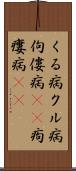 くる病クル病
佝僂病 痀
瘻病